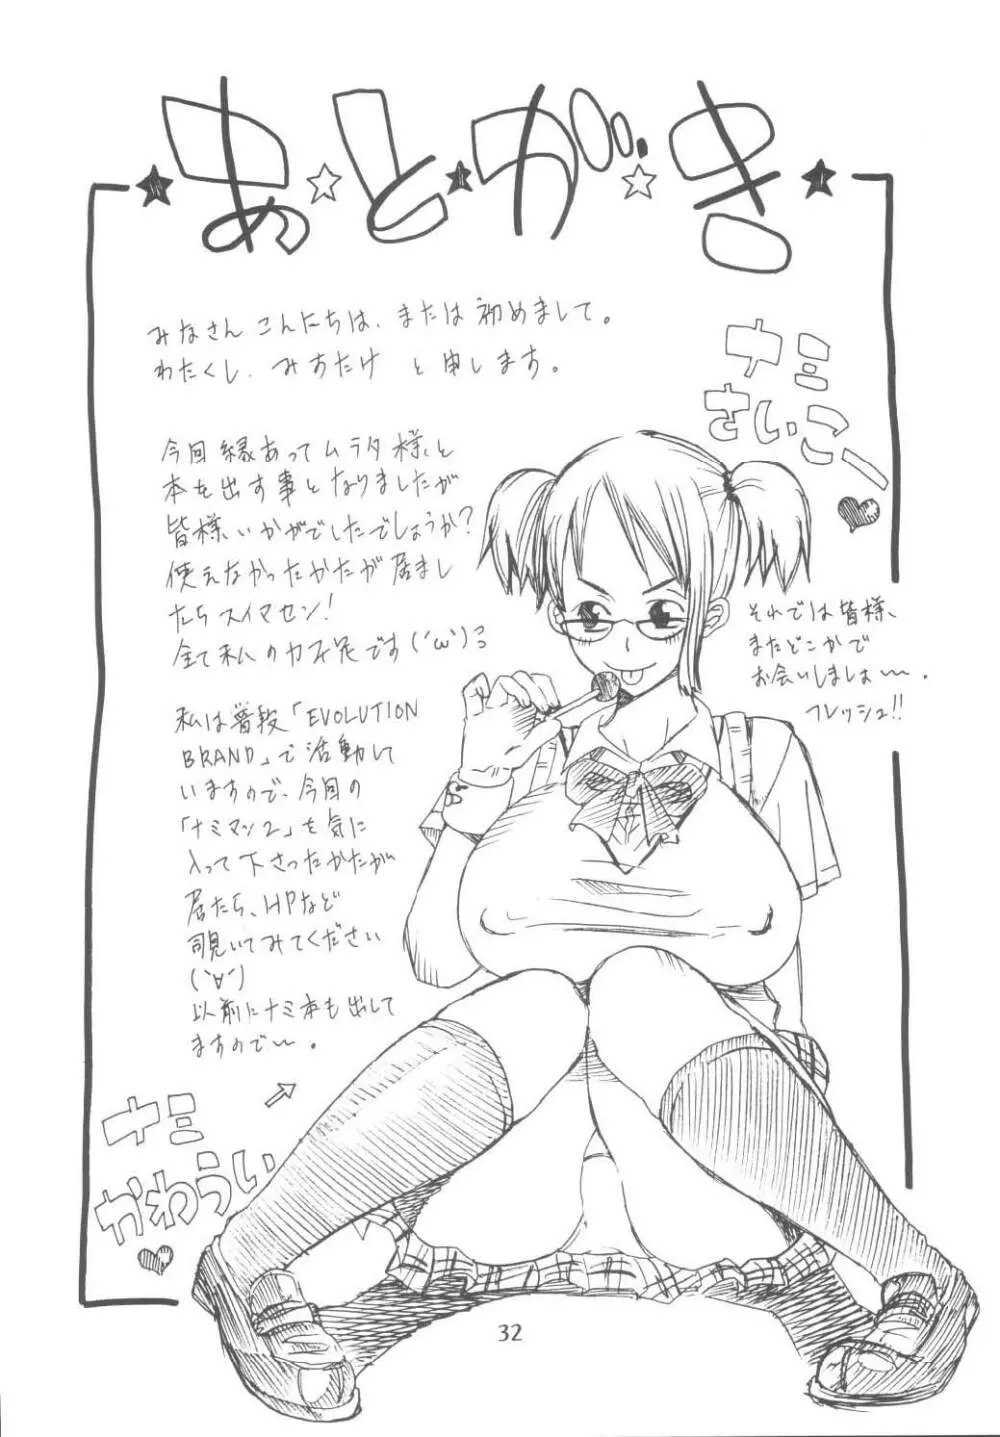 あ★と★が★き
みなさん こんにちは、または初めまして。
わたくし、みすたけ と申します。
今回縁あってムラタ様と
本を出す事となりましたが
皆様いかがでしたでしょうか?
使えなかったかたが居まし
たらスイマセン!
全て私の力不足です(´ω`)
私は普段「EVOLUTION
BRAND」で活動して
いますので、今回の
「ナミマン2」を気に
入って下さったかたが
居たら、HPなど
覗いてみてください
(´∀`)
以前にナミ本も出して
ますので〜。
ナミ
さいこー
それでは皆様、
またどこかで
お会いしましょ〜。
フレッシュ!!
ナミ
かわうい
32